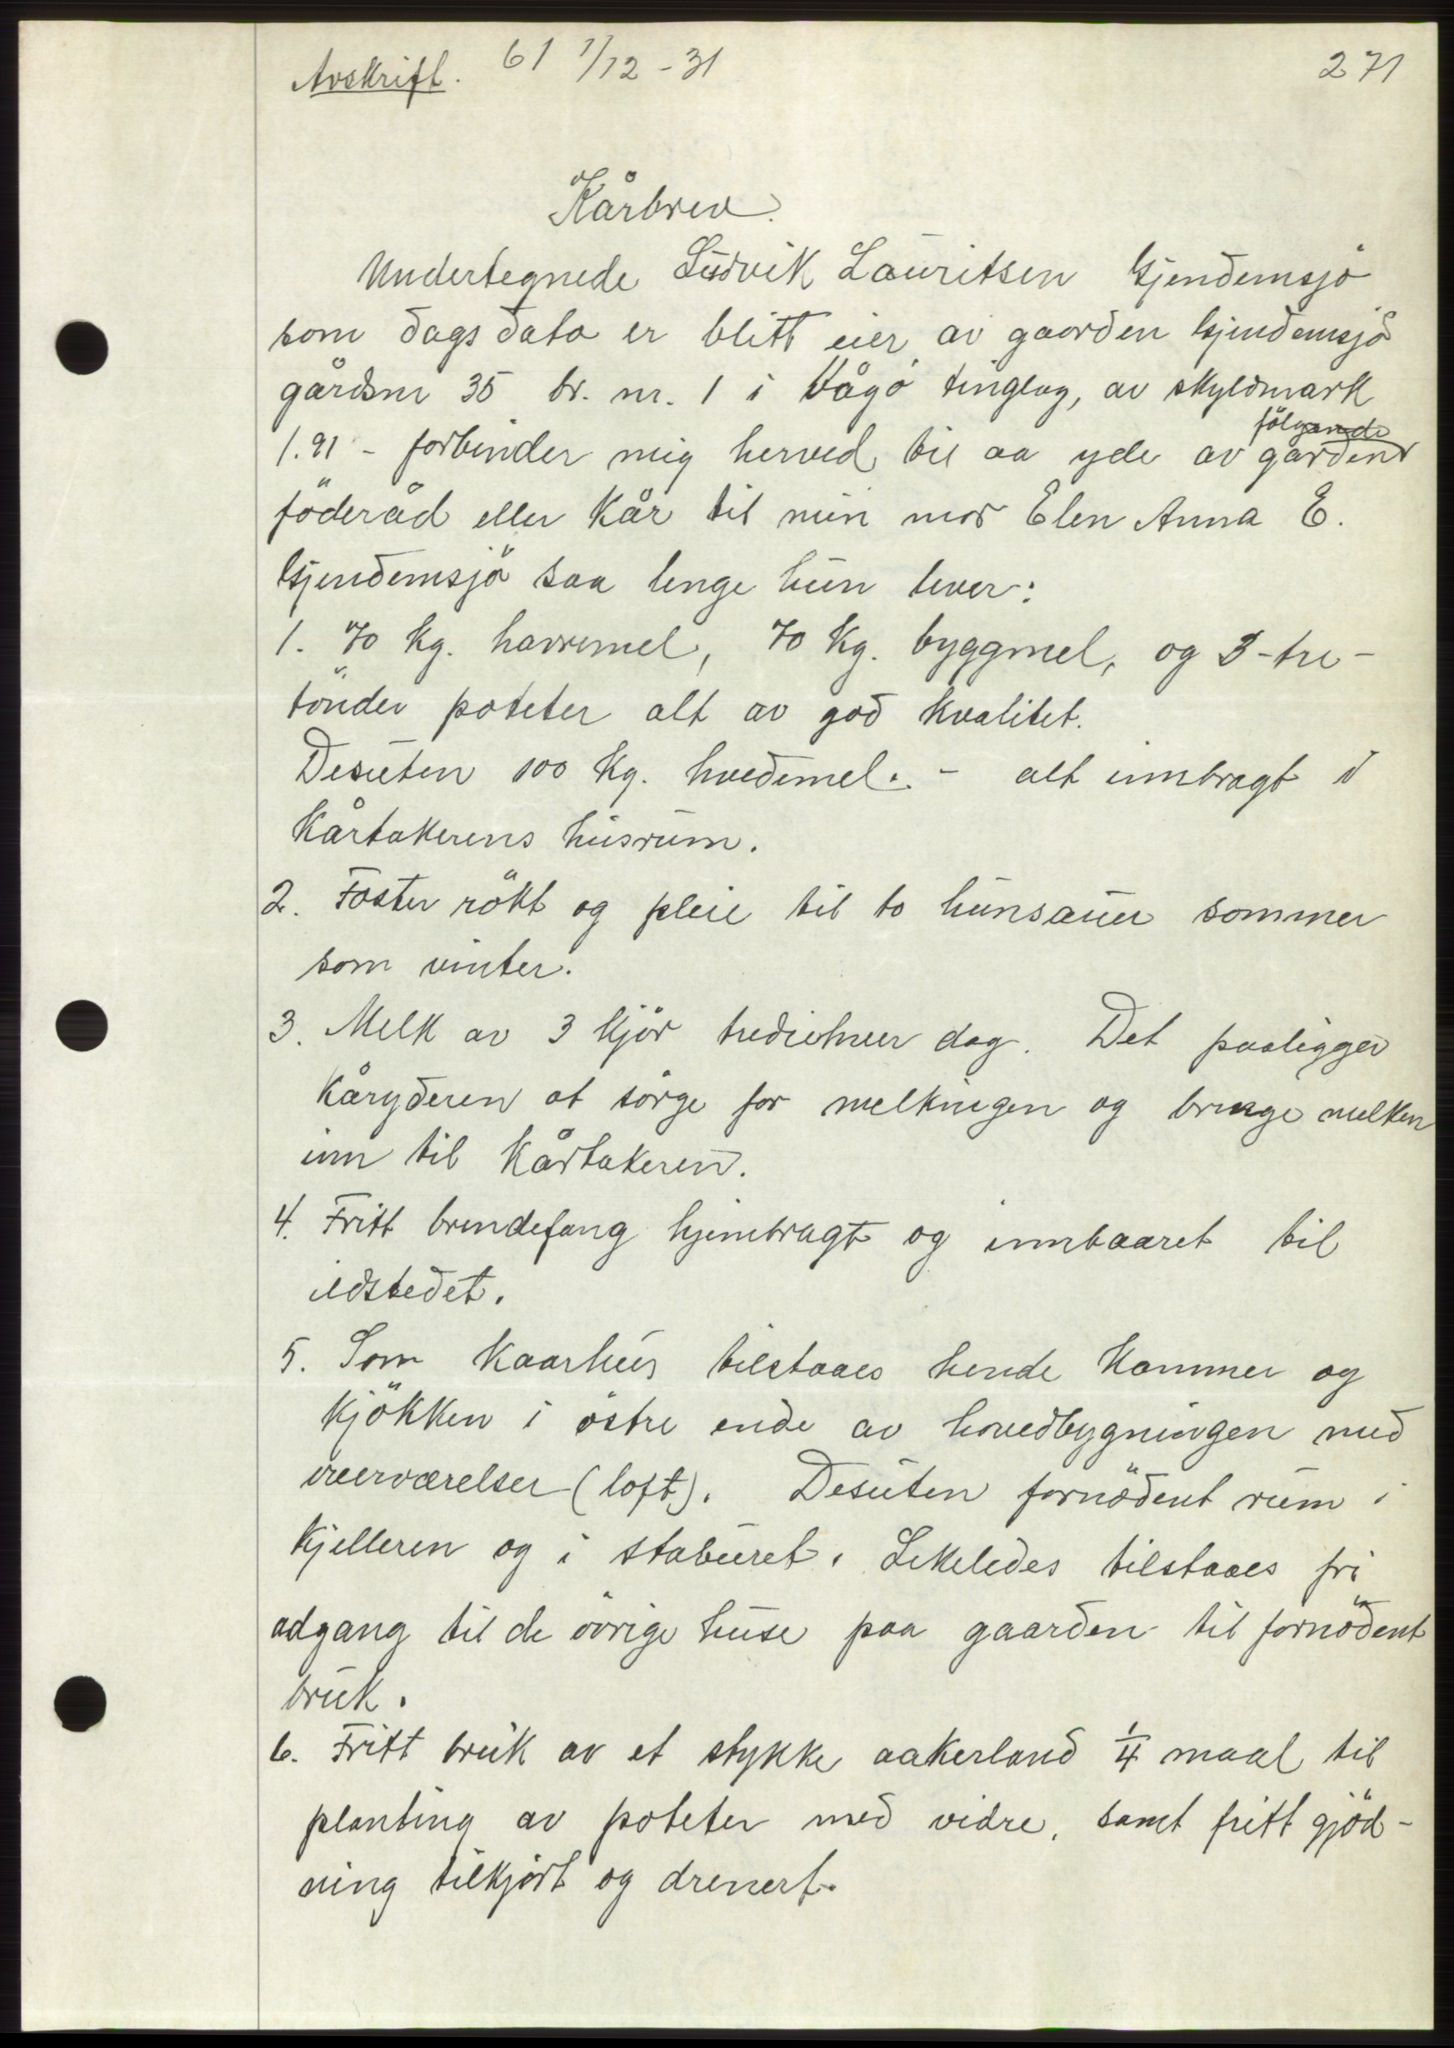 Avskrift. 61 1/12 - 31 271
Kårbrev.
Undertegnede Ludvik Lauritsen Gjendemsjö
som dags dato er blitt eier av gaarden Gjendemsjö
gårdsnr 35 br. nr. 1 i Vågö tinglag, av skyldmark
1.91 - forbinder mig herved til aa yde av gården
følgande
föderåd eller kår til min mor Elen Anna E.
Gjendemsjö saa lenge hun lever:
1. 70 kg. havremel, 70 kg. byggmel, og 3-tre-
tönder poteter alt av god kvalitet.
Desuten 100 kg. hvedemel. - alt innbragt i
kårtakerens husrum.
2. Foster rökt og pleie til to hunsauer sommer
som vinter.
3. Melk av 3 kjör trediehver dag. Det paaligger
kåryderen at sörge for melkingen og bringe melken
inn til kårtakeren.
4. Fritt brendefang hjembragt og innbaaret til
ildstedet.
5. Som kaarhus tilstaaes hende kammer og
kjökken i östre ende av hovedbygningen med
överværelser (loft). Desuten fornödent rum i
kjelleren og i staburet. Likeledes tilstaaes fri
adgang til de övrige huse paa gaarden til fornödent
bruk.
6. Fritt bruk av et stykke aakerland 1/4 maal til
planting av poteter med vidre, samt fritt gjöd-
ning tilkjört og drenert.